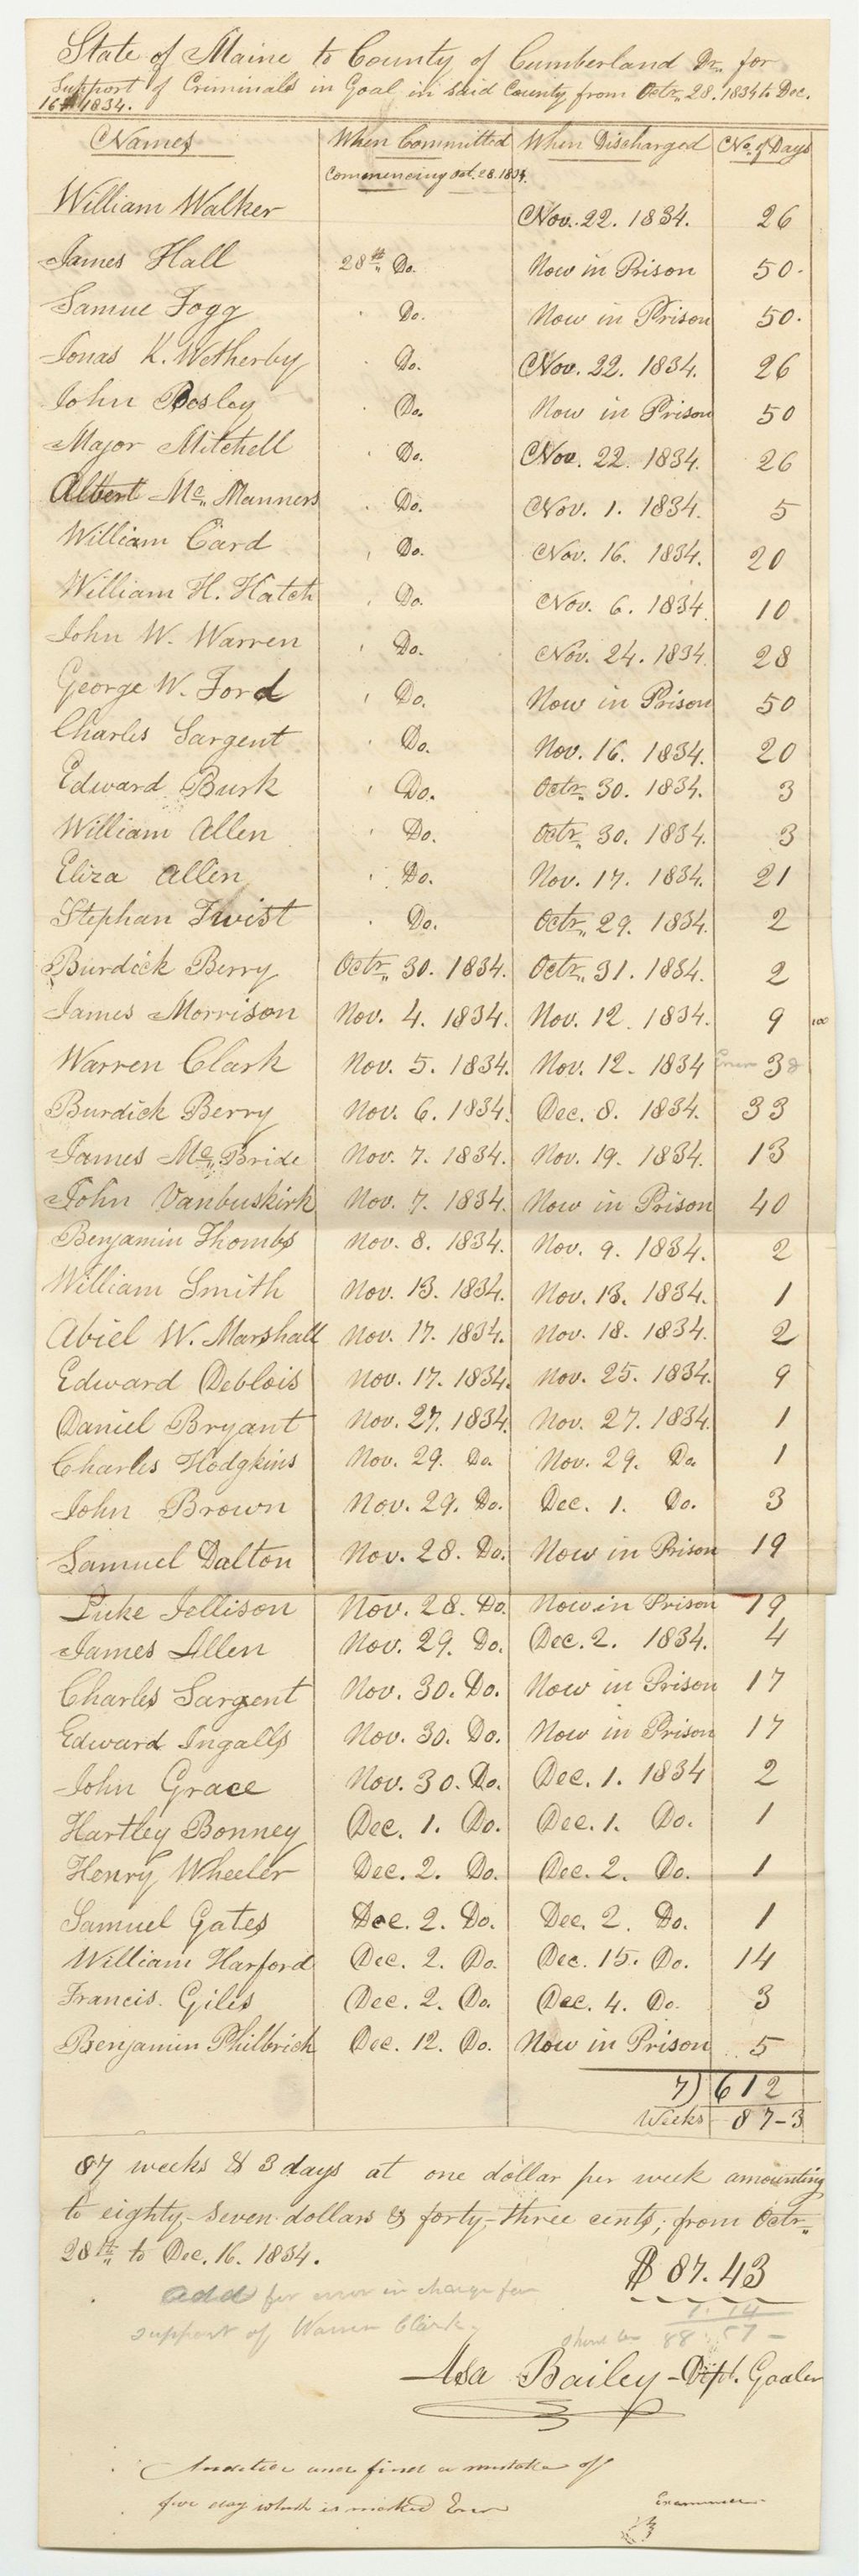 State of Maine to County of Cumberland Dr. for
Support of Criminals in Goal in said County from Octr. 28. 1834 to Dec.
16th 1834.
Names When Committed When Discharged No. of Days
Commencing Oct. 28. 1834.
William Walker Nov. 22. 1834. 26
James Hall 28th Do. Now in Prison 50.
Samue Fogg " Do. Now in Prison 50.
Jonas K. Wetherby " Do. Nov. 22. 1834. 26
John Bosley " Do. Now in Prison 50
Major Mitchell " Do. Nov. 22. 1834. 26
Albert Mc. Manners " Do. Nov. 1. 1834. 5
William Card " Do. Nov. 16. 1834. 20
William H. Hatch " Do. Nov. 6. 1834. 10
John W. Warren " Do. Nov. 24. 1834. 28
George W. Ford " Do. Now in Prison 50
Charles Sargent " Do. Nov. 16. 1834. 20
Edward Burk " Do. Octr. 30. 1834. 3
William Allen " Do. Octr. 30. 1834. 3
Eliza Allen " Do. Nov. 17. 1834. 21
Stephan Twist " Do. Octr. 29. 1834. 2
Burdick Berry Octr. 30. 1834. Octr. 31. 1834. 2
James Morrison Nov. 4. 1834. Nov. 12. 1834. 9
Warren Clark Nov. 5. 1834. Nov. 12. 1834 Error 3 8
Burdick Berry Nov. 6. 1834. Dec. 8. 1834. 33
James Mc. Bride Nov. 7. 1834. Nov. 19. 1834. 13
John Vanbuskirk Nov. 7. 1834. Now in Prison 40
Benjamin Thombs Nov. 8. 1834. Nov. 9. 1834. 2
William Smith Nov. 13. 1834. Nov. 13. 1834. 1
Abiel W. Marshall Nov. 17. 1834. Nov. 18. 1834. 2
Edward Deblois Nov. 17. 1834. Nov. 25. 1834. 9
Daniel Bryant Nov. 27. 1834. Nov. 27. 1834. 1
Charles Hodgkins Nov. 29. Do. Nov. 29. Do. 1
John Brown Nov. 29. Do. Dec. 1. Do. 3
Samuel Dalton Nov. 28. Do. Now in Prison 19
Luke Jellison Nov. 28. Do. Now in Prison 19
James Allen Nov. 29. Do. Dec. 2. 1834. 4
Charles Sargent Nov. 30. Do. Now in Prison 17
Edward Ingalls Nov. 30. Do. Now in Prison 17
John Grace Nov. 30. Do. Dec. 1. 1834 2
Hartley Bonney Dec. 1. Do. Dec. 1. Do. 1
Henry Wheeler Dec. 2. Do. Dec. 2. Do. 1
Samuel Gates Dec. 2. Do. Dec. 2. Do. 1
William Harford Dec. 2. Do. Dec. 15. Do. 14
Francis. Giles Dec. 2. Do. Dec. 4. Do. 3
Benjamin Philbrick Dec. 12. Do. Now in Prison 5
7) 612
Weeks 87-3
87 weeks & 3 days at one dollar per week amounting
to eighty-seven dollars & forty-three cents; from Octr.
28th to Dec. 16. 1834.
$ 87.43
add for error in charge for 1.14
support of Warren Clark. should be 88.57
Asa Bailey - Dept. Goaler
and find a mistake of
five day which is marked Error
Examiner